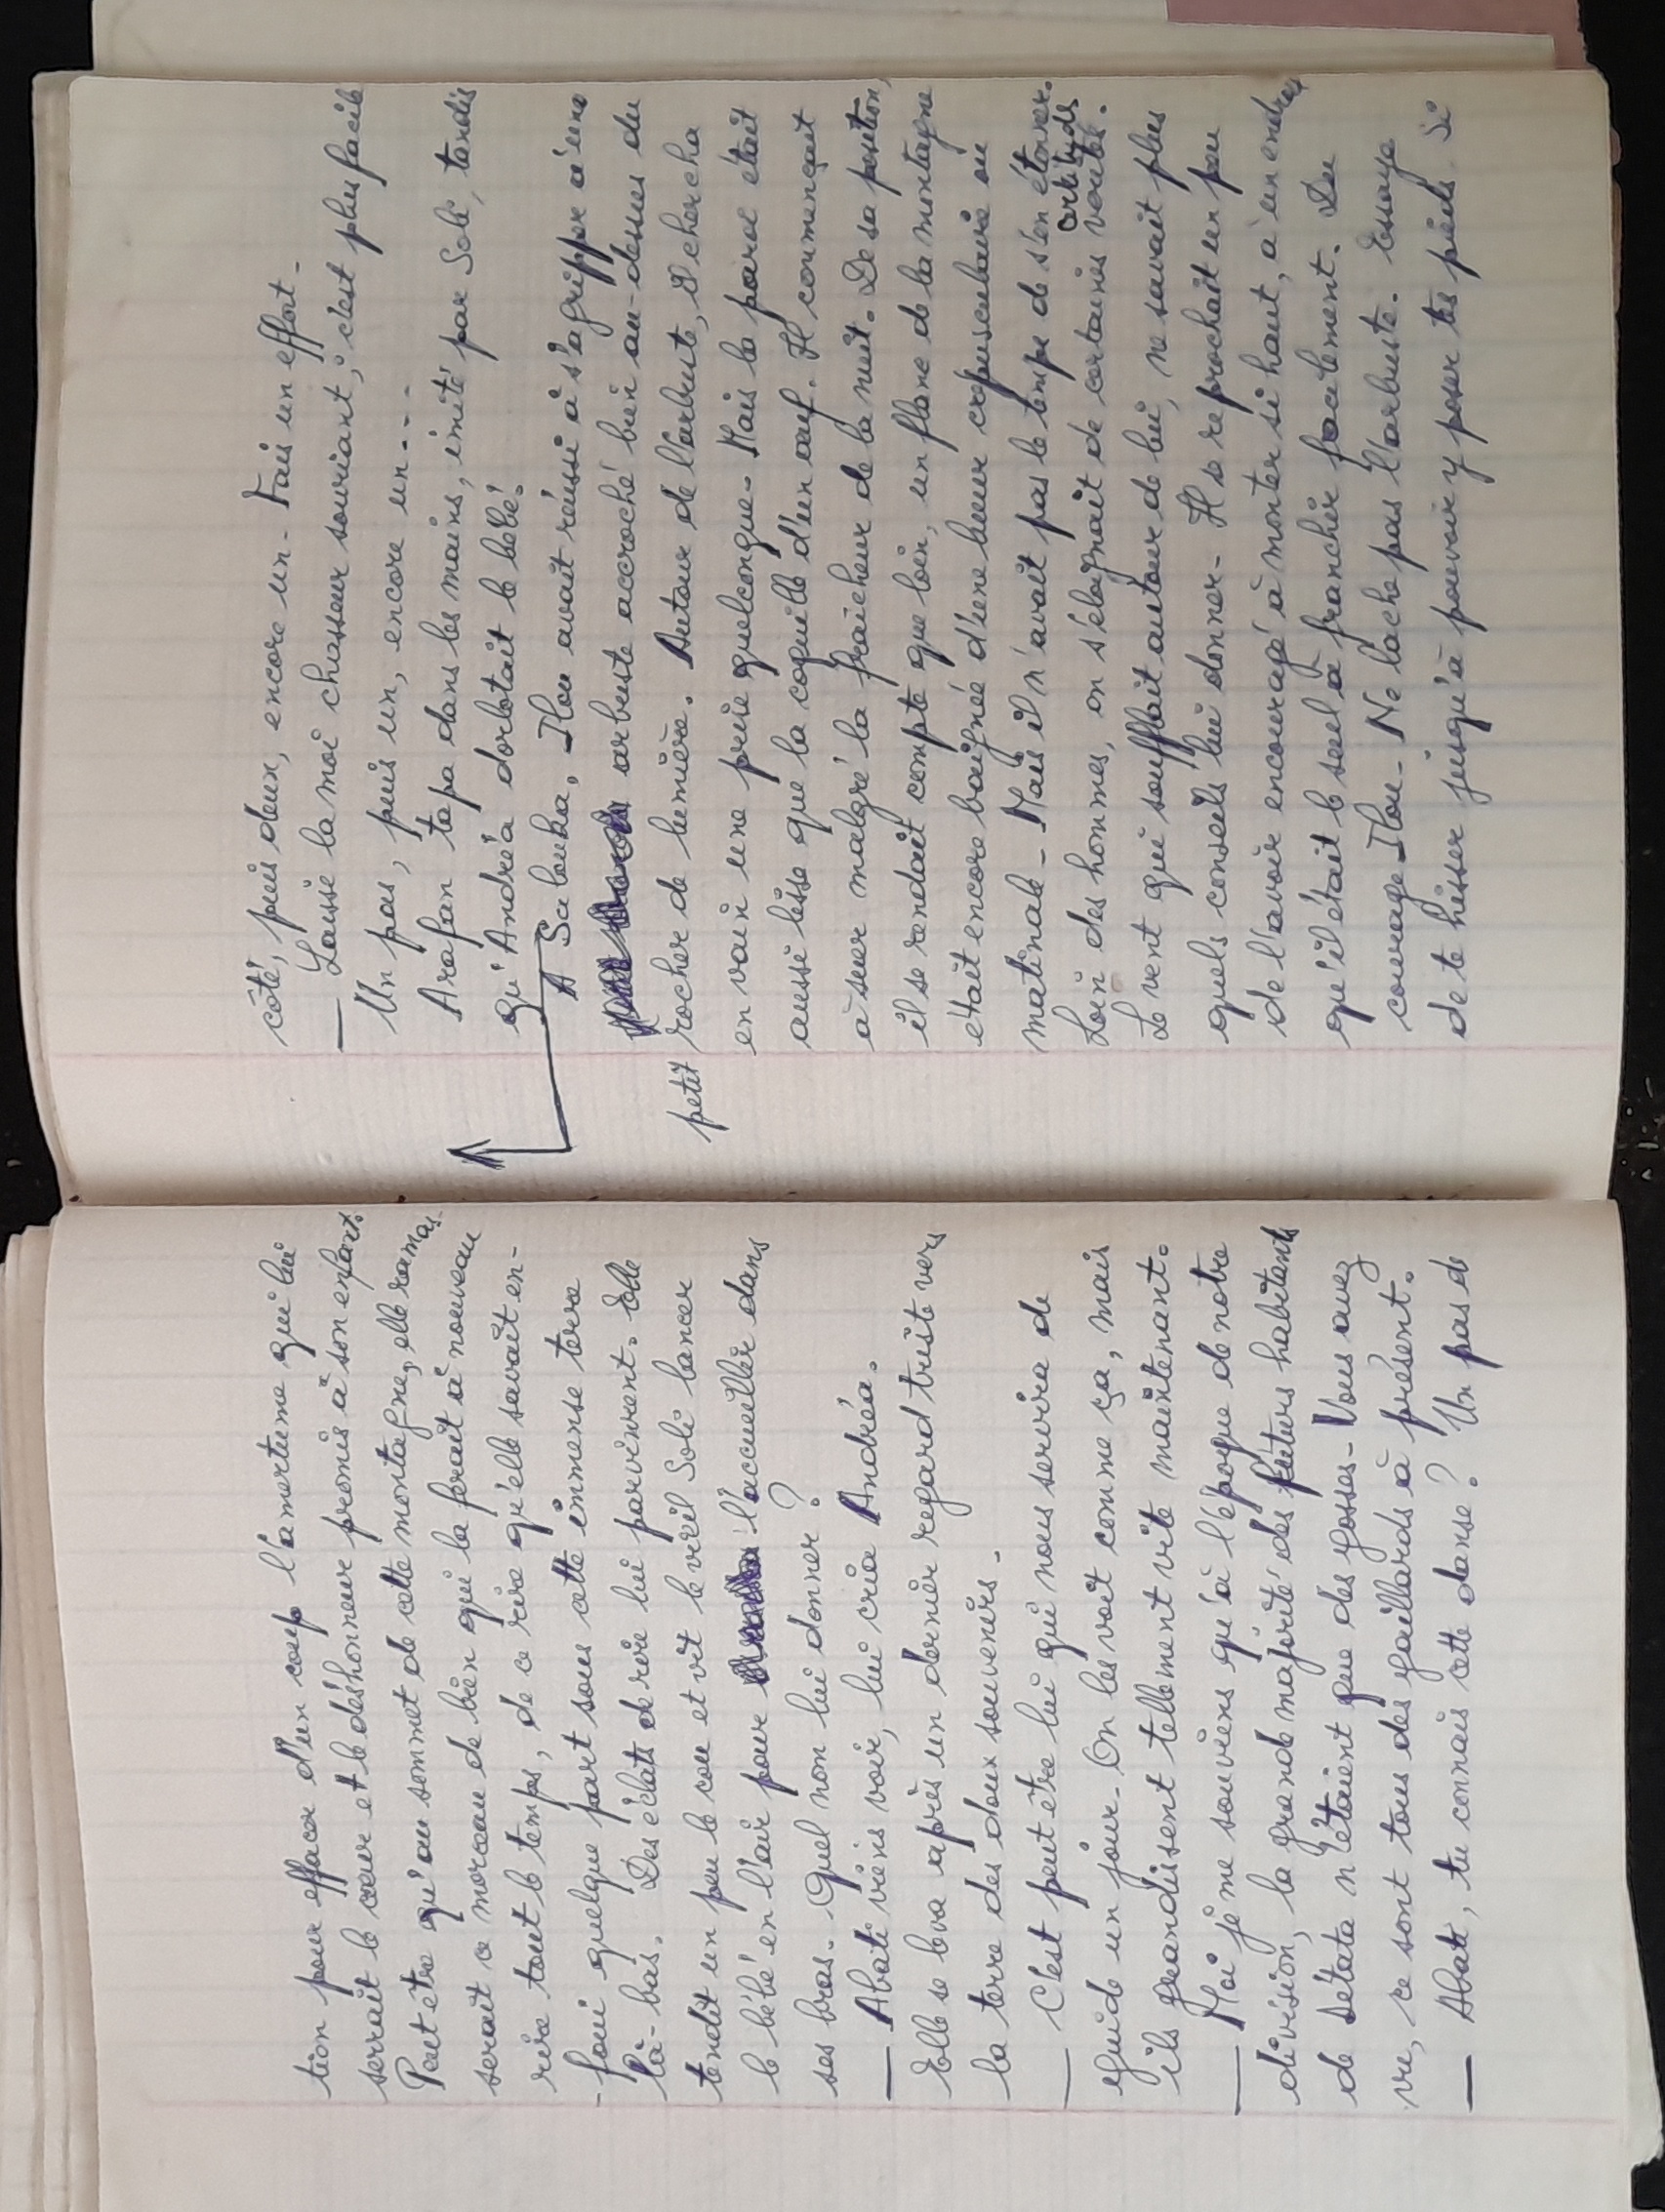 tion pour effacer d'un coup l'amertume qui lui
serrait le cœur et le déshonneur promis à son enfant.
Peut-être qu'au sommet de cette montagne, elle ramas-
serait ce morceau de bien qui la ferait à nouveau
rire tout le temps, de ce rire qu'elle savait en-
foui quelque part sous cette immense terre
là-bas. Des éclats de rire lui parvinrent. Elle
tendit un peu le cou et vit le viril Soli lancer
le bébé en l'air pour l'accueillir dans
ses bras. Quel nom lui donner ?
— Abati viens voir, lui cria Andréa.
Elle se leva après un dernier regard triste vers
la terre des doux souvenirs.
— C'est peut être lui qui nous servira de
guide un jour. On les voit comme ça, mais
ils grandissent tellement vite maintenant.
— Moi je me souviens qu'à l'époque de notre
division, la grande majorité des futurs habitants
de Sétata n'étaient que des gosses. Vous avez
vu, ce sont tous des gaillards à présent.
— Abati, tu connais cette danse ? Un pas de
côté, puis deux, encore un. Fais un effort.
— Laisse la moi chasseur souriant, c'est plus facile
Un pas, puis un, encore un...
Arafan tapa dans les mains, imité par Soli, tandis
qu'Andréa dorlotait le bébé.
A Salouha, Ilou avait réussi à s'agripper à un
arbuste accroché bien au-dessus du
petit rocher de lumière. Autour de l'arbuste, il chercha
en vain une prise quelconque. Mais la paroi était
aussi lisse que la coquille d'un œuf. Il commençait
à suer malgré la fraîcheur de la nuit. De sa position,
il se rendait compte que loin, un flanc de la montagne
était encore baigné d'une lueur crépusculaire ou
matinale. Mais il n'avait pas le temps de s'en étonner.
Loin des hommes, on s'éloignait de certaines certitudes voutés.
Le vent qui soufflait autour de lui, ne savait plus
quels conseils lui donner. Il se reprochait un peu
de l'avoir encouragé à monter si haut, à un endroit
qu'il était le seul à franchir facilement. Du
courage Ilou. Ne lache pas l'arbuste. Essaye
de te hisser jusqu'à pouvoir y poser tes pieds. Si